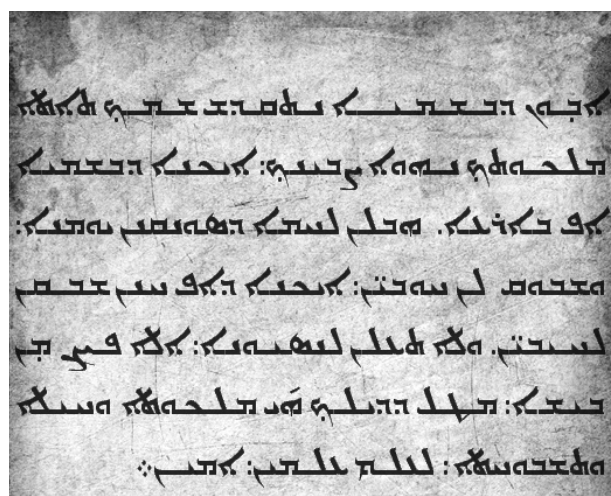 ܐܒ̣ܘܢ ܕܒܫܡܝܐ ܢܬܩܕܫ ܫܡܟ ܬܐܬܐ
ܡܠܟܘܬܟ ܢܗܘܐ ܨܒܝܢܟ: ܐܝܟܢܐ ܕܒܫܡܝܐ
ܐܦ ܒܐܪܥܐ. ܗܒ ܠܢ ܠܚܡܐ ܕܣܘܢܩܢܢ ܝܘܡܢܐ:
ܘܫܒܘܩ ܠܢ ܚܘܒܝ̈ܢ: ܐܝܟܢܐ ܕܐܦ ܚܢܢ ܫܒܩܢ
ܠܚܝܒܝ̈ܢ. ܘܠܐ ܬܥܠܢ ܠܢܣܝܘܢܐ: ܐܠܐ ܦܨܢ ܡ̣ܢ
ܒܝܫܐ: ܡܛܠ ܕܕܝܠܟ ܗ̇ܝ ܡܠܟܘܬܐ ܘܚܝܠܐ
ܘܬܫܒܘܚܬܐ: ܠܥܠܡ ܥܠܡܝܢ: ܐܡܝܢ܀